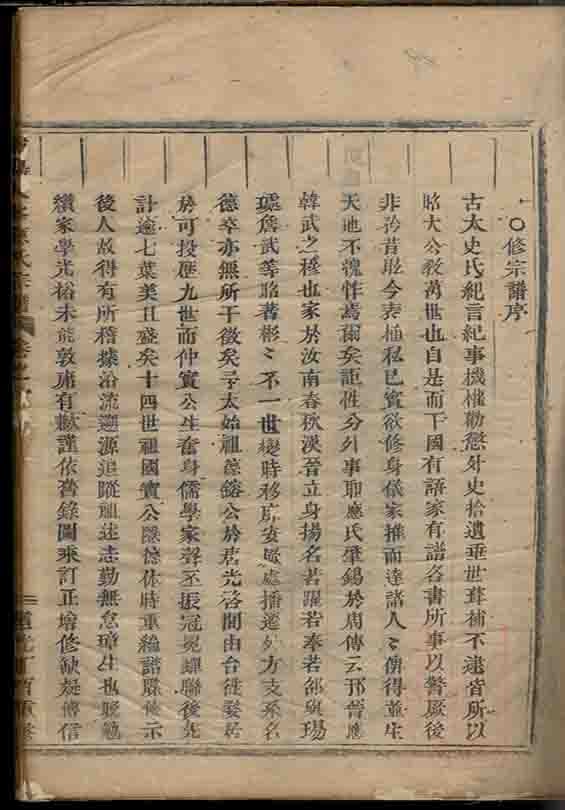 修宗譜序
古太史氏紀言紀事機權勸懲外史拾遺垂世葺補不逮皆所以
昭大公教萬世也自是而下國有語家有譜各書所事以警厥後
非矜昔眩今表植私已實欲修身儀家推而達諸人〻俾得並生
天地不愧怍焉爾矣詎性分外事耶應氏肇錫於周傳云邘晉應
韓武之穆也家於汝南春秋漢晉立身揚名若躍若奉若劭與瑒
璩詹武等昭著彬〻不一世變時移處播遷外方支系名
德卒亦無所干徵矣太始祖公於光啓間由台徙婺居
於可投歷九世而仲實公生奮身儒學家聲丕振冠冕蟬聯後先
計逾七葉美且盛矣十四世祖國實公隱德休時重編譜示
後人故得有所稽據沿流遡源追蹤祖述志勤無怠生也
纘家學光裕未能敦庸有歉謹依舊錄圖乘訂正增修缺疑傳信
氏宗譜